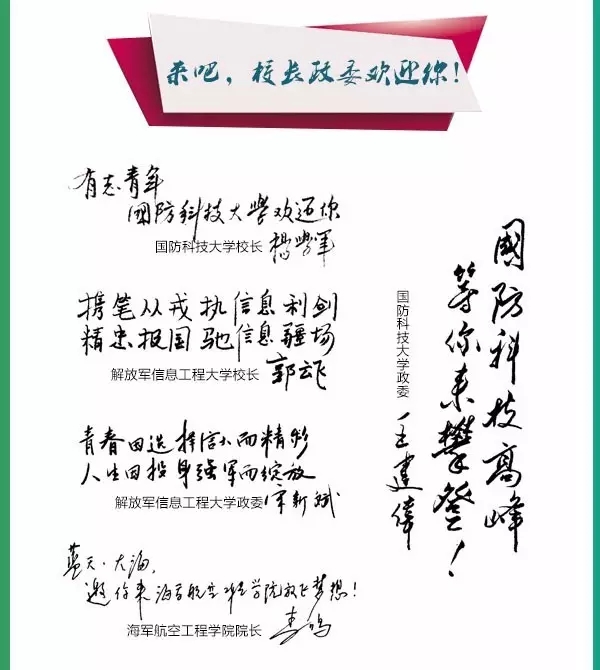 来吧，校长政委欢迎你！
有志青年
國防科技大學欢迎你
国防科技大学校长 楊學軍
携笔从戎 执信息利剑
精忠报国 驰信息疆场
解放军信息工程大学校长 郭云飞
青春因选择信大而精彩
人生因投身强军而绽放
解放军信息工程大学政委
蓝天·大海，
邀你来海军航空工程学院放飞梦想！
海军航空工程学院院长
國防科技高峰
等你来攀登！
国防科技大学政委 王建偉